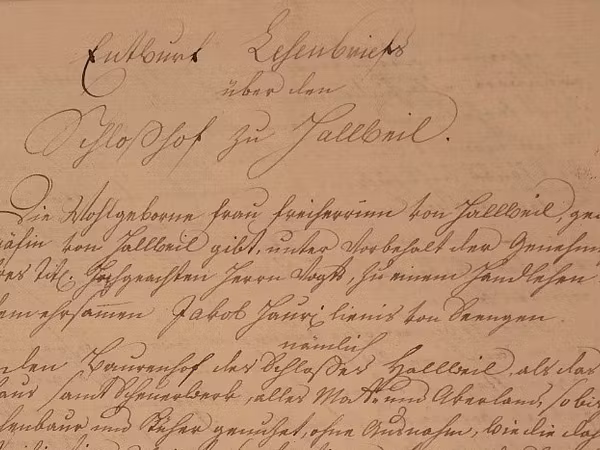 Entwurf Lehenbriefs
über den
Schloßhof zu Hallweil.
Die Wohlgeborne Frau Freiherrinn von Hallweil, geb
räfin von Hallweil gibt, unter Vorbehalt der Genehm
res Titl. Hochgeachten Herrn Vogts, zu einem Handlehen
dem ehrsammen Jakob Hauri von Seengen.
nämlich
den Baurenhof des Schloßes Hallweil, als das
haus samt Scheuerwerk, alles Matt- und Akerland, so bis
henbaur und Steher genutzet, ohne Ausnahm, wie die da